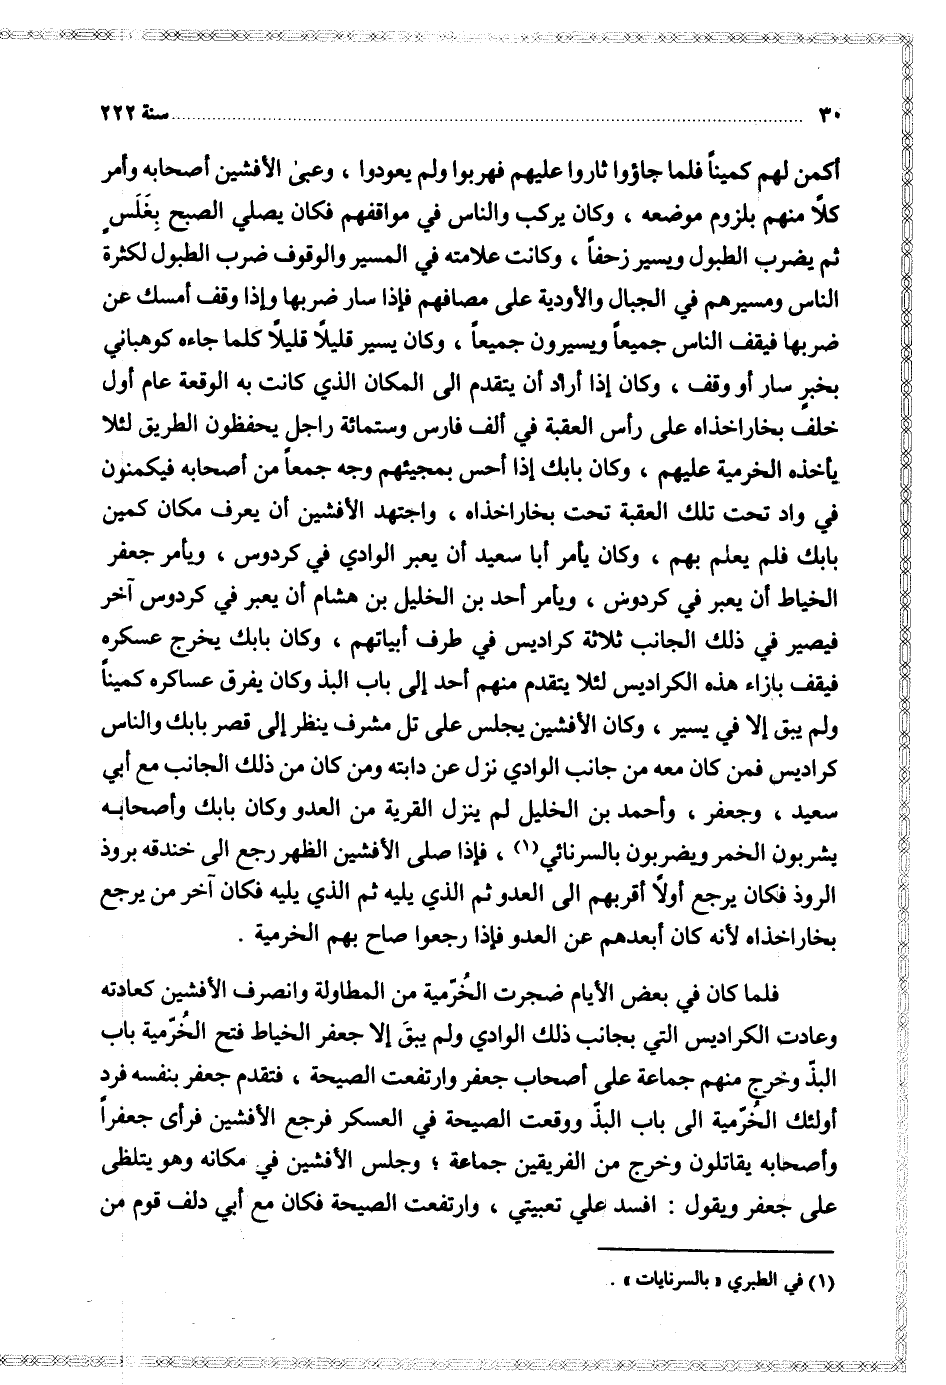 ٣٠ ........................................ سنة ٢٢٢
أكمن لهم كميناً فلما جاؤوا ثاروا عليهم فهربوا ولم يعودوا ، وعبىٰ الأفشين أصحابه وأمر
كلًا منهم بلزوم موضعه ، وكان يركب والناس في مواقفهم فكان يصلي الصبح بِغَلَسٍ
ثم يضرب الطبول ويسير زحفاً ، وكانت علامته في المسير والوقوف ضرب الطبول لكثرة
الناس ومسيرهم في الجبال والأودية على مصافهم فإذا سار ضربها وإذا وقف أمسك عن
ضربها فيقف الناس جميعاً ويسيرون جميعاً ، وكان يسير قليلًا قليلًا كلما جاءه كوهباني
بخبرٍ سار أو وقف ، وكان إذا أراد أن يتقدم الى المكان الذي كانت به الوقعة عام أول
خلف بخاراخذاه على رأس العقبة في ألف فارس وستمائة راجل يحفظون الطريق لئلا
يأخذه الخرمية عليهم ، وكان بابك إذا أحس بمجيئهم وجه جمعاً من أصحابه فيكمنون
في واد تحت تلك العقبة تحت بخاراخذاه ، واجتهد الأفشين أن يعرف مكان كمين
بابك فلم يعلم بهم ، وكان يأمر أبا سعيد أن يعبر الوادي في كردوس ، ويأمر جعفر
الخياط أن يعبر في كردوس ، ويأمر أحد بن الخليل بن هشام أن يعبر في كردوس آخر
فيصير في ذلك الجانب ثلاثة كراديس في طرف أبياتهم ، وكان بابك يخرج عسكره
فيقف بازاء هذه الكراديس لئلا يتقدم منهم أحد إلى باب البذ وكان يفرق عساكره كميناً
ولم يبق إلا في يسير ، وكان الأفشين يجلس على تل مشرف ينظر إلى قصر بابك والناس
كراديس فمن كان معه من جانب الوادي نزل عن دابته ومن كان من ذلك الجانب مع أبي
سعيد ، وجعفر ، وأحمد بن الخليل لم ينزل القرية من العدو وكان بابك وأصحابه
يشربون الخمر ويضربون بالسرنائي(١) ، فإذا صلى الأفشين الظهر رجع الى خندقه بروذ
الروذ فكان يرجع أولًا أقربهم الى العدو ثم الذي يليه ثم الذي يليه فكان آخر من يرجع
بخاراخذاه لأنه كان أبعدهم عن العدو فإذا رجعوا صاح بهم الخرمية .
فلما كان في بعض الأيام ضجرت الخُرّمية من المطاولة وانصرف الأفشين كعادته
وعادت الكراديس التي بجانب ذلك الوادي ولم يبقَ إلا جعفر الخياط فتح الخُرّمية باب
البذّ وخرج منهم جماعة على أصحاب جعفر وارتفعت الصيحة ، فتقدم جعفر بنفسه فرد
أولئك الخُرّمية الى باب البذّ ووقعت الصيحة في العسكر فرجع الأفشين فرأى جعفراً
وأصحابه يقاتلون وخرج من الفريقين جماعة ؛ وجلس الأفشين في مكانه وهو يتلظى
على جعفر ويقول : افسد علي تعبيتي ، وارتفعت الصيحة فكان مع أبي دلف قوم من
(١) في الطبري « بالسرنايات » .